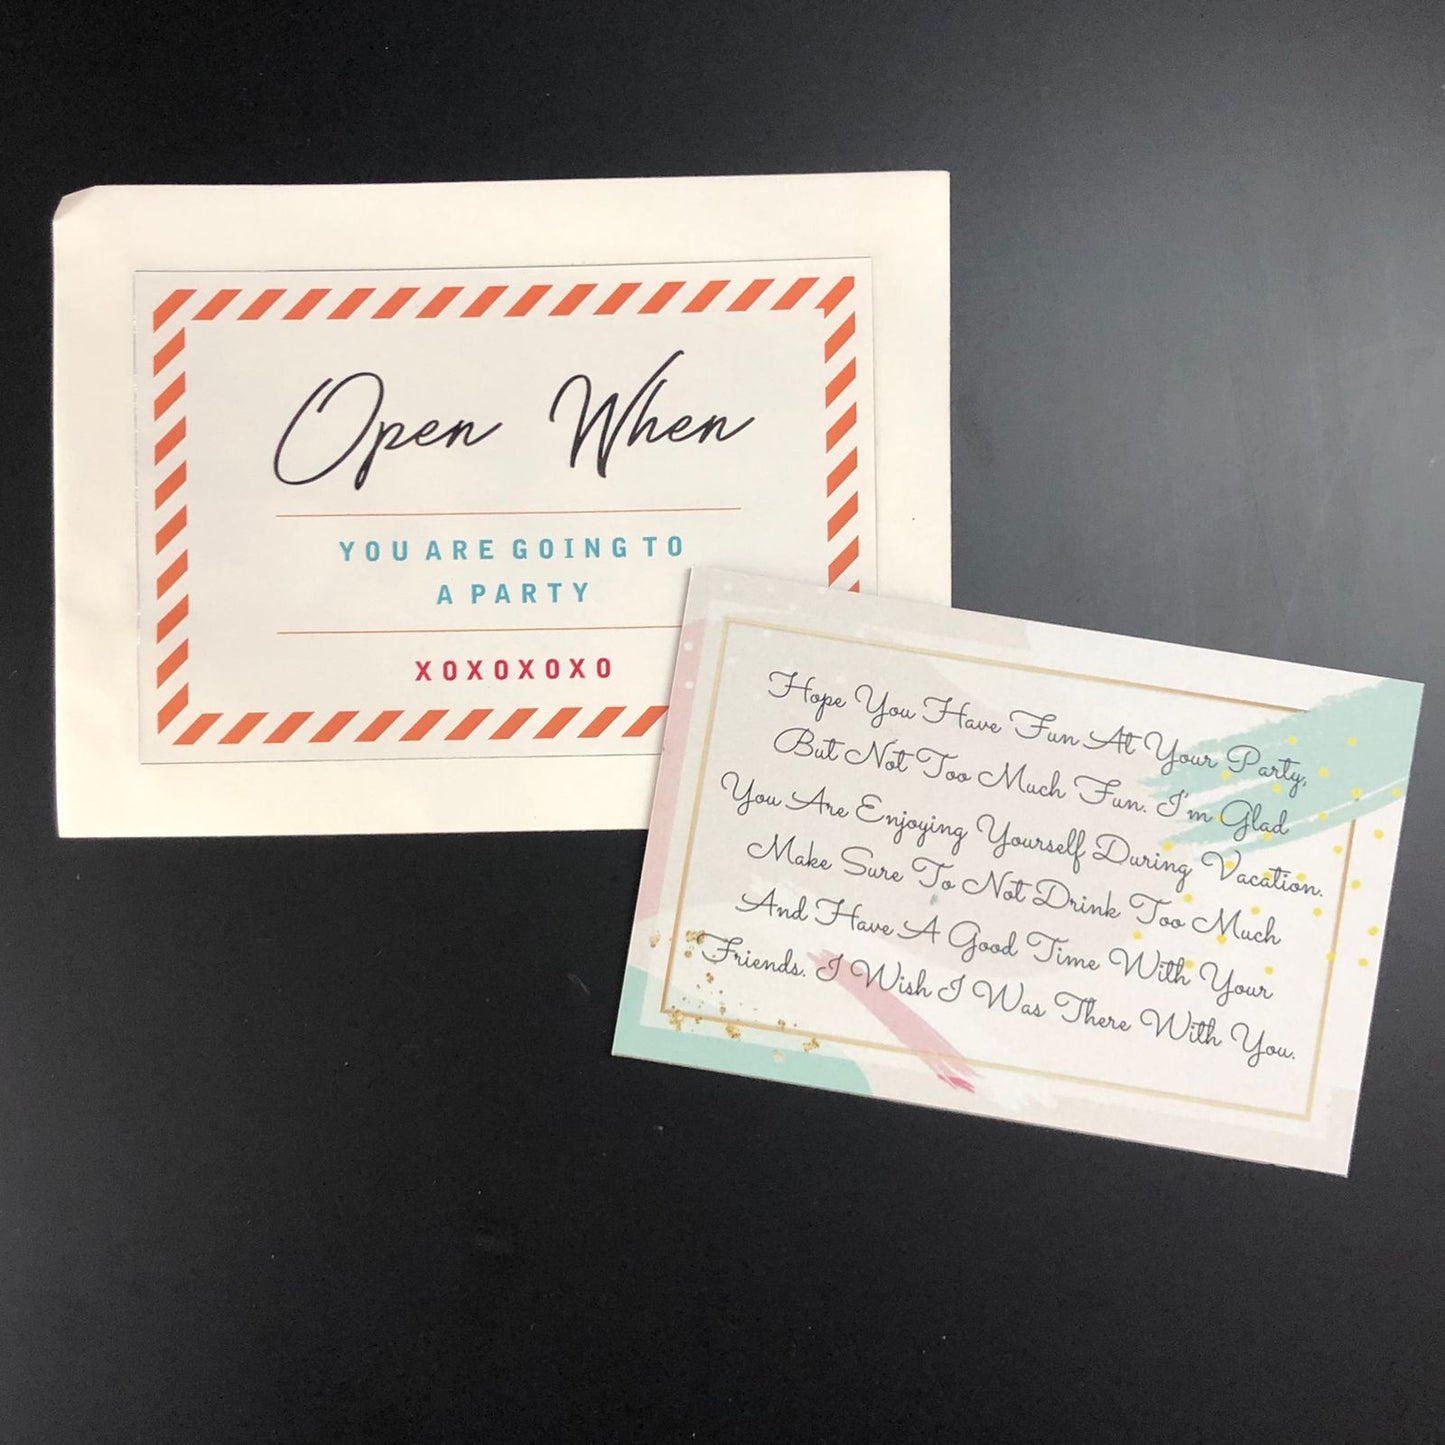 Open When
YOU ARE GOING TO
A PARTY
XOXOXOXO
Hope You Have Fun At Your Party,
But Not Too Much Fun. I'm Glad
You Are Enjoying Yourself During Vacation.
Make Sure To Not Drink Too Much
And Have A Good Time With Your
Friends. I Wish I Was There With You.